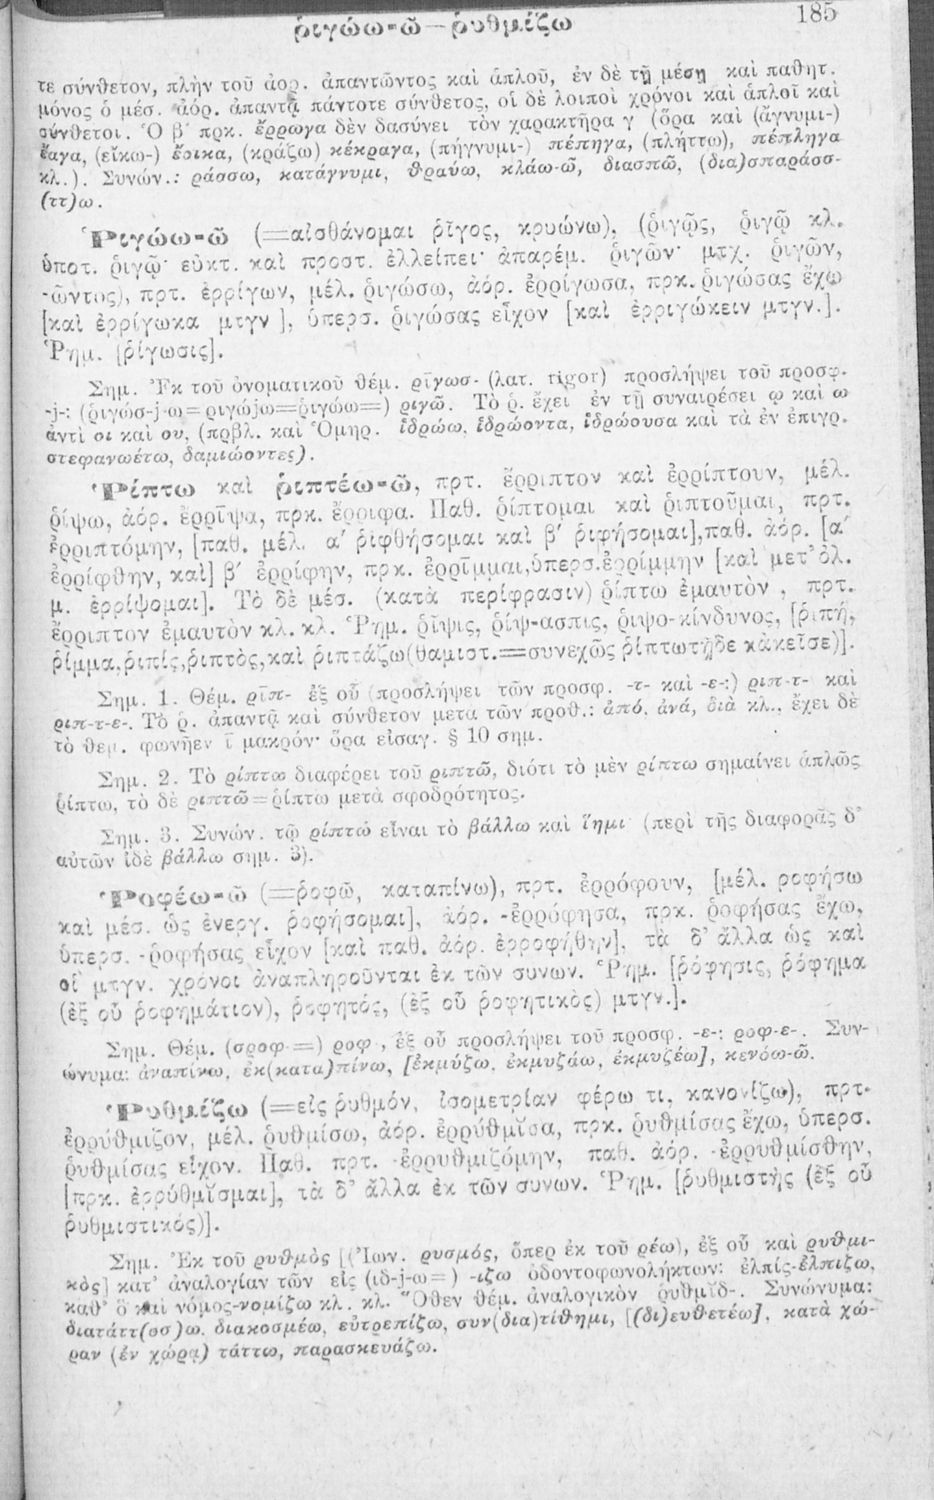 ῥιγώω-ῶ — ῥυθμίζω 185
τε σύνθετον, πλὴν τοῦ ἀορ. ἀπαντῶντος καὶ ἁπλοῦ, ἐν δὲ τῇ μέσῃ καὶ παθητ.
μόνος ὁ μέσ. ἀόρ. ἀπαντᾷ πάντοτε σύνθετος, οἱ δὲ λοιποὶ χρόνοι καὶ ἁπλοῖ καὶ
σύνθετοι. Ὁ β' πρκ. ἔρρωγα δὲν δασύνει τὸν χαρακτῆρα γ (ὅρα καὶ (ἄγνυμι-)
ἔαγα, (εἴκω-) ἔοικα, (κράζω) κέκραγα, (πήγνυμι-) πέπηγα, (πλήττω), πέπληγα
κλ.). Συνών.: ράσσω, κατάγνυμι, θραύω, κλάω-ῶ, διασπῶ, (δια)σπαράσσ-
(ττ)ω.
Ῥιγώω-ῶ (=αἰσθάνομαι ῥῖγος, κρυώνω), (ῥιγῷς, ῥιγῷ κλ.
ὑποτ. ῥιγῷ· εὐκτ. καὶ προστ. ἐλλείπει· ἀπαρέμ. ῥιγῶν· μτχ. ῥιγῶν,
-ῶντος), πρτ. ἐρρίγων, μέλ. ῥιγώσω, ἀόρ. ἐρρίγωσα, πρκ. ῥιγώσας ἔχω
[καὶ ἐρρίγωκα μτγν], ὑπερσ. ῥιγώσας εἶχον [καὶ ἐρριγώκειν μτγν.].
Ῥημ. [ῥίγωσις].
Σημ. Ἐκ τοῦ ὀνοματικοῦ θέμ. ρῑγωσ- (λατ. rigor) προσλήψει τοῦ προσφ.
-j-: (ῥιγώσ-j-ω=ριγώjω=ῥιγώω=) ριγῶ. Τὸ ῥ. ἔχει ἐν τῇ συναιρέσει ῳ καὶ ω
ἀντὶ οι καὶ ου, (πρβλ. καὶ Ὁμηρ. ἱδρώω, ἱδρώοντα, ἱδρώουσα καὶ τὰ ἐν ἐπιγρ.
στεφανωέτω, δαμιώοντες).
Ῥίπτω καὶ ῥιπτέω-ῶ, πρτ. ἔρριπτον καὶ ἐρρίπτουν, μέλ.
ῥίψω, ἀόρ. ἔρρῑψα, πρκ. ἔρριφα. Παθ. ῥίπτομαι καὶ ῥιπτοῦμαι, πρτ.
ἐρριπτόμην, [παθ. μέλ. α' ῥιφθήσομαι καὶ β' ῥιφήσομαι], παθ. ἀόρ. [α'
ἐρρίφθην, καὶ] β' ἐρρίφην, πρκ. ἐρρῖμμαι, ὑπερσ. ἐρρίμμην [καὶ μετ' ὀλ.
μ. ἐρρίψομαι]. Τὸ δὲ μέσ. (κατὰ περίφρασιν) ῥίπτω ἐμαυτὸν, πρτ.
ἔρριπτον ἐμαυτὸν κλ. κλ. Ῥημ. ῥῖψις, ῥίψ-ασπις, ῥιψο-κίνδυνος, [ῥιπή,
ῥῖμμα, ῥιπίς, ῥιπτὸς, καὶ ῥιπτάζω (θαμιστ.=συνεχῶς ῥίπτω τῇδε κἀκεῖσε)].
Σημ. 1. Θέμ. ρῑπ- ἐξ οὗ (προσλήψει τῶν προσφ. -τ- καὶ -ε-:) ριπ-τ- καὶ
ριπ-τ-ε-. Τὸ ῥ. ἀπαντᾷ καὶ σύνθετον μετὰ τῶν προθ.: ἀπό, ἀνά, διὰ κλ., ἔχει δὲ
τὸ θεμ. φωνῆεν ῑ μακρόν· ὅρα εἰσαγ. § 10 σημ.
Σημ. 2. Τὸ ρίπτω διαφέρει τοῦ ριπτῶ, διότι τὸ μὲν ρίπτω σημαίνει ἁπλῶς
ῥίπτω, τὸ δὲ ριπτῶ=ῥίπτω μετὰ σφοδρότητος.
Σημ. 3. Συνών. τῷ ρίπτω εἶναι τὸ βάλλω καὶ ἵημι (περὶ τῆς διαφορᾶς δ'
αὐτῶν ἰδὲ βάλλω σημ. 3).
Ῥοφέω-ῶ (=ῥοφῶ, καταπίνω), πρτ. ἐρρόφουν, [μέλ. ροφήσω
καὶ μέσ. ὡς ἐνεργ. ῥοφήσομαι], ἀόρ. -ἐρρόφησα, πρκ. ῥοφήσας ἔχω,
ὑπερσ. -ῥοφήσας εἶχον [καὶ παθ. ἀόρ. ἐρροφήθην], τὰ δ' ἄλλα ὡς καὶ
οἱ μτγν. χρόνοι ἀναπληροῦνται ἐκ τῶν συνων. Ῥημ. [ῥόφησις, ῥόφημα
(ἐξ οὗ ῥοφημάτιον), ῥοφητός, (ἐξ οὗ ῥοφητικὸς) μτγν.].
Σημ. Θέμ. (σροφ-=) ροφ-, ἐξ οὗ προσλήψει τοῦ προσφ. -ε-: ροφ-ε-. Συν-
ώνυμα: ἀναπίνω, ἐκ(κατα)πίνω, [ἐκμύζω, ἐκμυζάω, ἐκμυζέω], κενόω-ῶ.
Ῥυθμίζω (=εἰς ῥυθμόν, ἰσομετρίαν φέρω τι, κανονίζω), πρτ.
ἐρρύθμιζον, μέλ. ῥυθμίσω, ἀόρ. ἐρρύθμῐσα, πρκ. ῥυθμίσας ἔχω, ὑπερσ.
ῥυθμίσας εἶχον. Παθ. πρτ. -ἐρρυθμιζόμην, παθ. ἀόρ. -ἐρρυθμίσθην,
[πρκ. ἐρρύθμῐσμαι], τὰ δ' ἄλλα ἐκ τῶν συνων. Ῥημ. [ῥυθμιστὴς (ἐξ οὗ
ῥυθμιστικός)].
Σημ. Ἐκ τοῦ ρυθμὸς [(Ἰων. ρυσμός, ὅπερ ἐκ τοῦ ρέω), ἐξ οὗ καὶ ρυθμι-
κὸς] κατ' ἀναλογίαν τῶν εἰς (ιδ-j-ω=) -ιζω ὀδοντοφωνολήκτων: ἐλπίς-ἐλπίζω,
καθ' ὃ καὶ νόμος-νομίζω κλ. κλ. Ὅθεν θέμ. ἀναλογικὸν ῥυθμῐδ-. Συνώνυμα:
διατάττ(σσ)ω, διακοσμέω, εὐτρεπίζω, συν(δια)τίθημι, [(δι)ευθετέω], κατὰ χώ-
ραν (ἐν χώρᾳ) τάττω, παρασκευάζω.